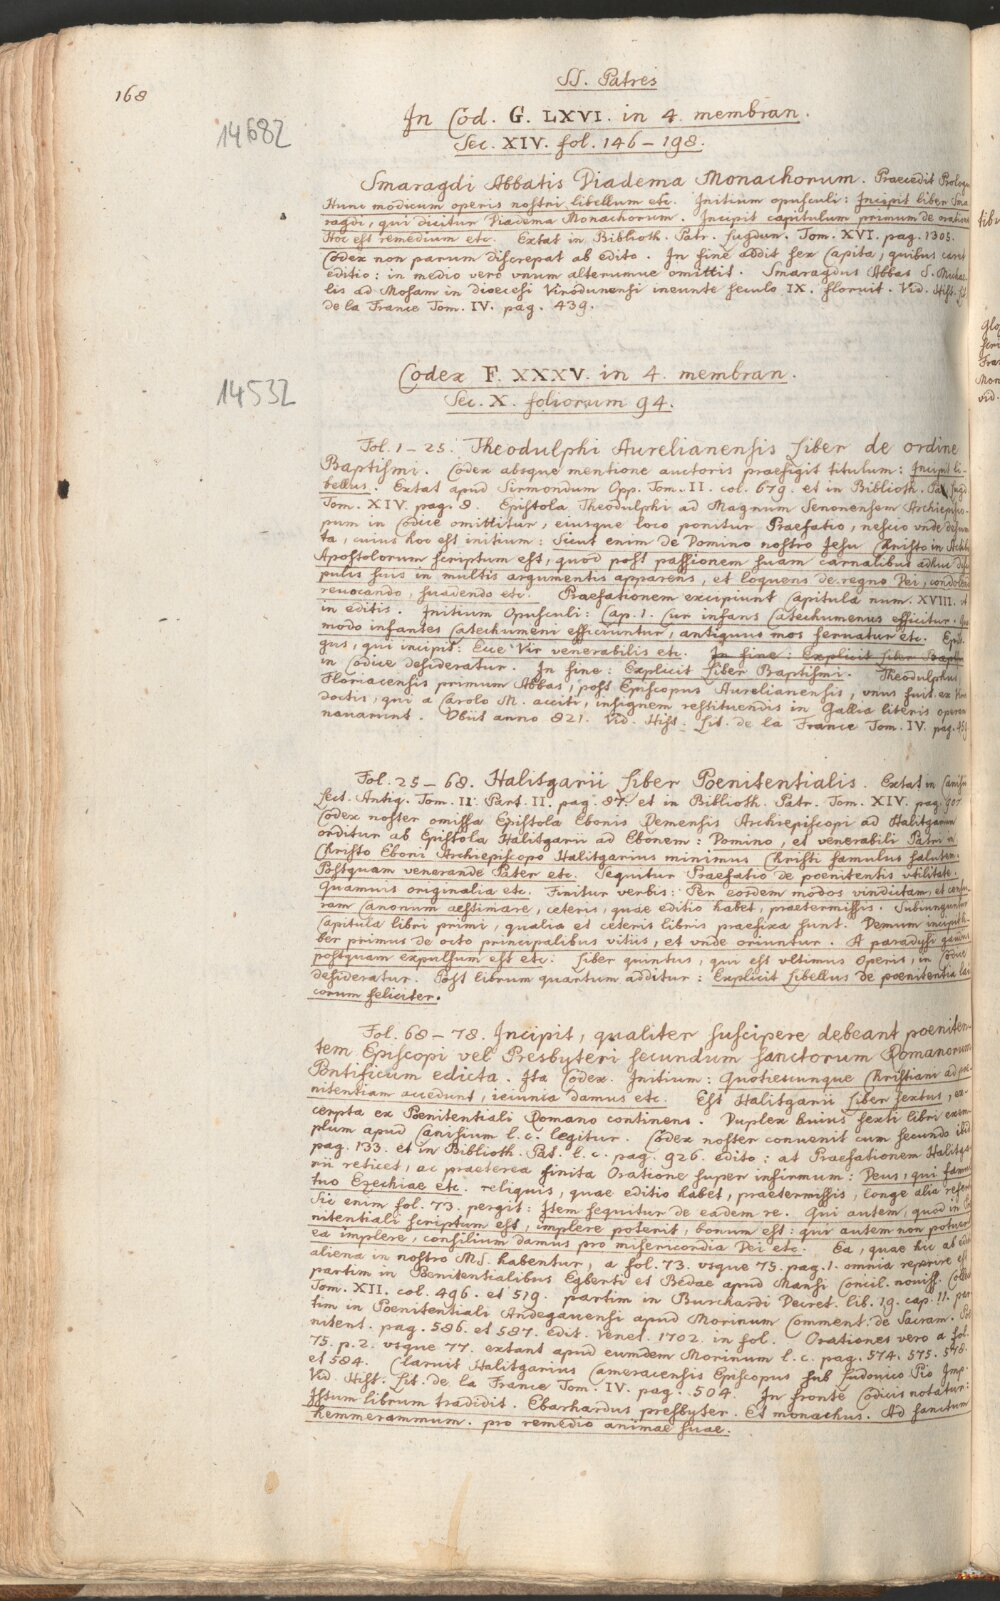 168
SS. Patres
In Cod. G. LXVI. in 4. membran.
14682
Sec. XIV. fol. 146 – 198.
Smaragdi Abbatis Diadema Monachorum. Praecedit Prologus
Hunc modicum operis nostri libellum etc. Initium opusculi: Incipit liber Sma
ragdi, qui dicitur Diadema Monachorum. Incipit capitulum primum de oratione
Hoc est remedium etc. Extat in Biblioth. Patr. Lugdun. Tom. XVI. pag. 1305.
Codex non parum discrepat ab edito. In fine addit sex Capita, quibus caret
editio: in medio vero vnum alterumue omittit. Smaragdus Abbas S. Michae
lis ad Mosam in dioecesi Virodunensi ineunte seculo IX. floruit. Vid. Hist. Lit
de la France Tom. IV. pag. 439.
Codex F. XXXV. in 4. membran.
14532
Sec. X. foliorum 94.
Fol. 1 – 25. Theodulphi Aurelianensis Liber de ordine
Baptismi. Codex absque mentione auctoris praefigit titulum: Incipit li-
bellus. Extat apud Sirmondum Opp. Tom. II. col. 679. et in Biblioth. Pat. Lugd
Tom. XIV. pag. 8. Epistola Theodulphi ad Magnum Senonensem Archiepisco-
pum in Codice omittitur, eiusque loco ponitur Praefatio, nescio vnde desum
ta, cuius hoc est initium: Sicut enim de Domino nostro Jesu Christo in Actib
Apostolorum scriptum est, quod post passionem suam carnalibus adhuc disci
pulis suis in multis argumentis apparens, et loquens de regno Dei, condolens
reuocando, suadendo etc. Praefationem excipiunt Capitula num. XVIII. vt
in editis. Initium Opusculi: Cap. 1. Cur infans Catechumenus efficitur. Quo
modo infantes Catechumeni efficiuntur, antiquus mos seruatur etc. Epilo-
gus, qui incipit: Ecce Vir venerabilis etc. In fine: Explicit Liber Baptis
in Codice desideratur. In fine: Explicit Liber Baptismi. Theodulphus
Floriacensis primum Abbas, post Episcopus Aurelianensis, vnus fuit ex Viris
doctis, qui a Carolo M. acciti, insignem restituendis in Gallia literis operam
nauarunt. Obiit anno 821. Vid. Hist. Lit. de la France Tom. IV. pag. 459
Fol. 25 – 68. Halitgarii Liber Poenitentialis. Extat in Canisii
Lect. Antiq. Tom. II. Part. II. pag. 87. et in Biblioth. Patr. Tom. XIV. pag. 907
Codex noster omissa Epistola Ebonis Remensis Archiepiscopi ad Halitgarium
orditur ab Epistola Halitgarii ad Ebonem: Domino, et venerabili Patri in
Christo Eboni Archiepiscopo Halitgarius minimus Christi famulus salutem.
Postquam venerande Pater etc. Sequitur Praefatio de poenitentis vtilitate.
Quamuis originalia etc. Finitur verbis: Per eosdem modos vindictam, et censu-
ram Canonum aestimare, ceteris, quae editio habet, praetermissis. Subiunguntur
Capitula libri primi, qualia et ceteris libris praefixa sunt. Demum incipit li-
ber primus de octo principalibus vitiis, et vnde oriuntur. A paradysi gaudiis
postquam expulsum est etc. Liber quintus, qui est vltimus Operis, in Codice
desideratur. Post librum quartum additur: Explicit Libellus de poenitentia lai
corum feliciter.
Fol. 68 – 78. Incipit, qualiter suscipere debeant poeniten-
tem Episcopi vel Presbyteri secundum sanctorum Romanorum
Pontificum edicta. Ita Codex. Initium: Quotiescunque Christiani ad poe
nitentiam accedunt, ieiunia damus etc. Est Halitgarii Liber sextus, ex-
cerpta ex Poenitentiali Romano continens. Duplex huius sexti libri exem-
plum apud Canisium l. c. legitur. Codex noster conuenit cum secundo ibid
pag. 133. et in Biblioth. Pat. l. c. pag. 926. edito: at Praefationem Halitga
rii reticet, ac praeterea finita Oratione super infirmum: Deus, qui famu
tuo Ezechiae etc. reliquis, quae editio habet, praetermissis, longe alia refert
Sic enim fol. 73. pergit: Item sequitur de eadem re. Qui autem, quod in Poe
nitentiali scriptum est, implere poterit, bonum est: qui autem non potuer
ea implere, consilium damus pro misericordia Dei etc. Ea, quae hic ab edit
aliena in nostro MS. habentur, a fol. 73. vsque 75. pag. 1. omnia reperire est
partim in Poenitentialibus Egberti et Bedae apud Mansi Concil. nouiss. Collect
Tom. XII. col. 496. et 519. partim in Burchardi Decret. lib. 19. cap. 11. par
tim in Poenitentiali Andegauensi apud Morinum Comment. de Sacram. Poe
nitent. pag. 586. et 587. edit. Venet. 1702. in fol. Orationes vero a fol.
75. p. 2. vsque 77. extant apud eumdem Morinum l. c. pag. 574. 575. 578.
et 584. Claruit Halitgarius Cameracensis Episcopus sub Ludouico Pio Imp.
Vid. Hist. Lit. de la France Tom. IV. pag. 504. In fronte Codicis notatur:
Istum librum tradidit. Ebarhardus presbyter. Et monachus. Ad sanctum
hemmerammum. pro remedio animae suae.